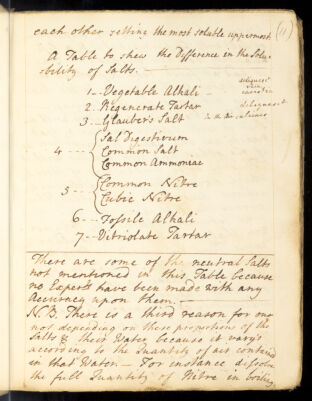 (11)
each other setting the most soluble uppermost
A Table to shew the Difference in the Solu-
-bility of Salts. —
1 -- Vegetable Alkali —
2. Regenerate Tartar
deliquesct
3 -- Glauber's Salt
in the Air
4 --
Sal Digestivum
Common Salt
Common Ammoniac
5 --
Common Nitre
Cubic Nitre
6 -- Fossile Alkali
7 -- Vitriolate Tartar
There are some of the neutral Salts
not mentioned in this Table because
no Experts have been made with any
Accuracy upon them. —
N.B. There is a third reason for
not depending on these proportions of the
Salts & their Water because it varys
according to the Quantity of air contain
in that Water — For instance dissolve
the full Quantity of Nitre in boiling